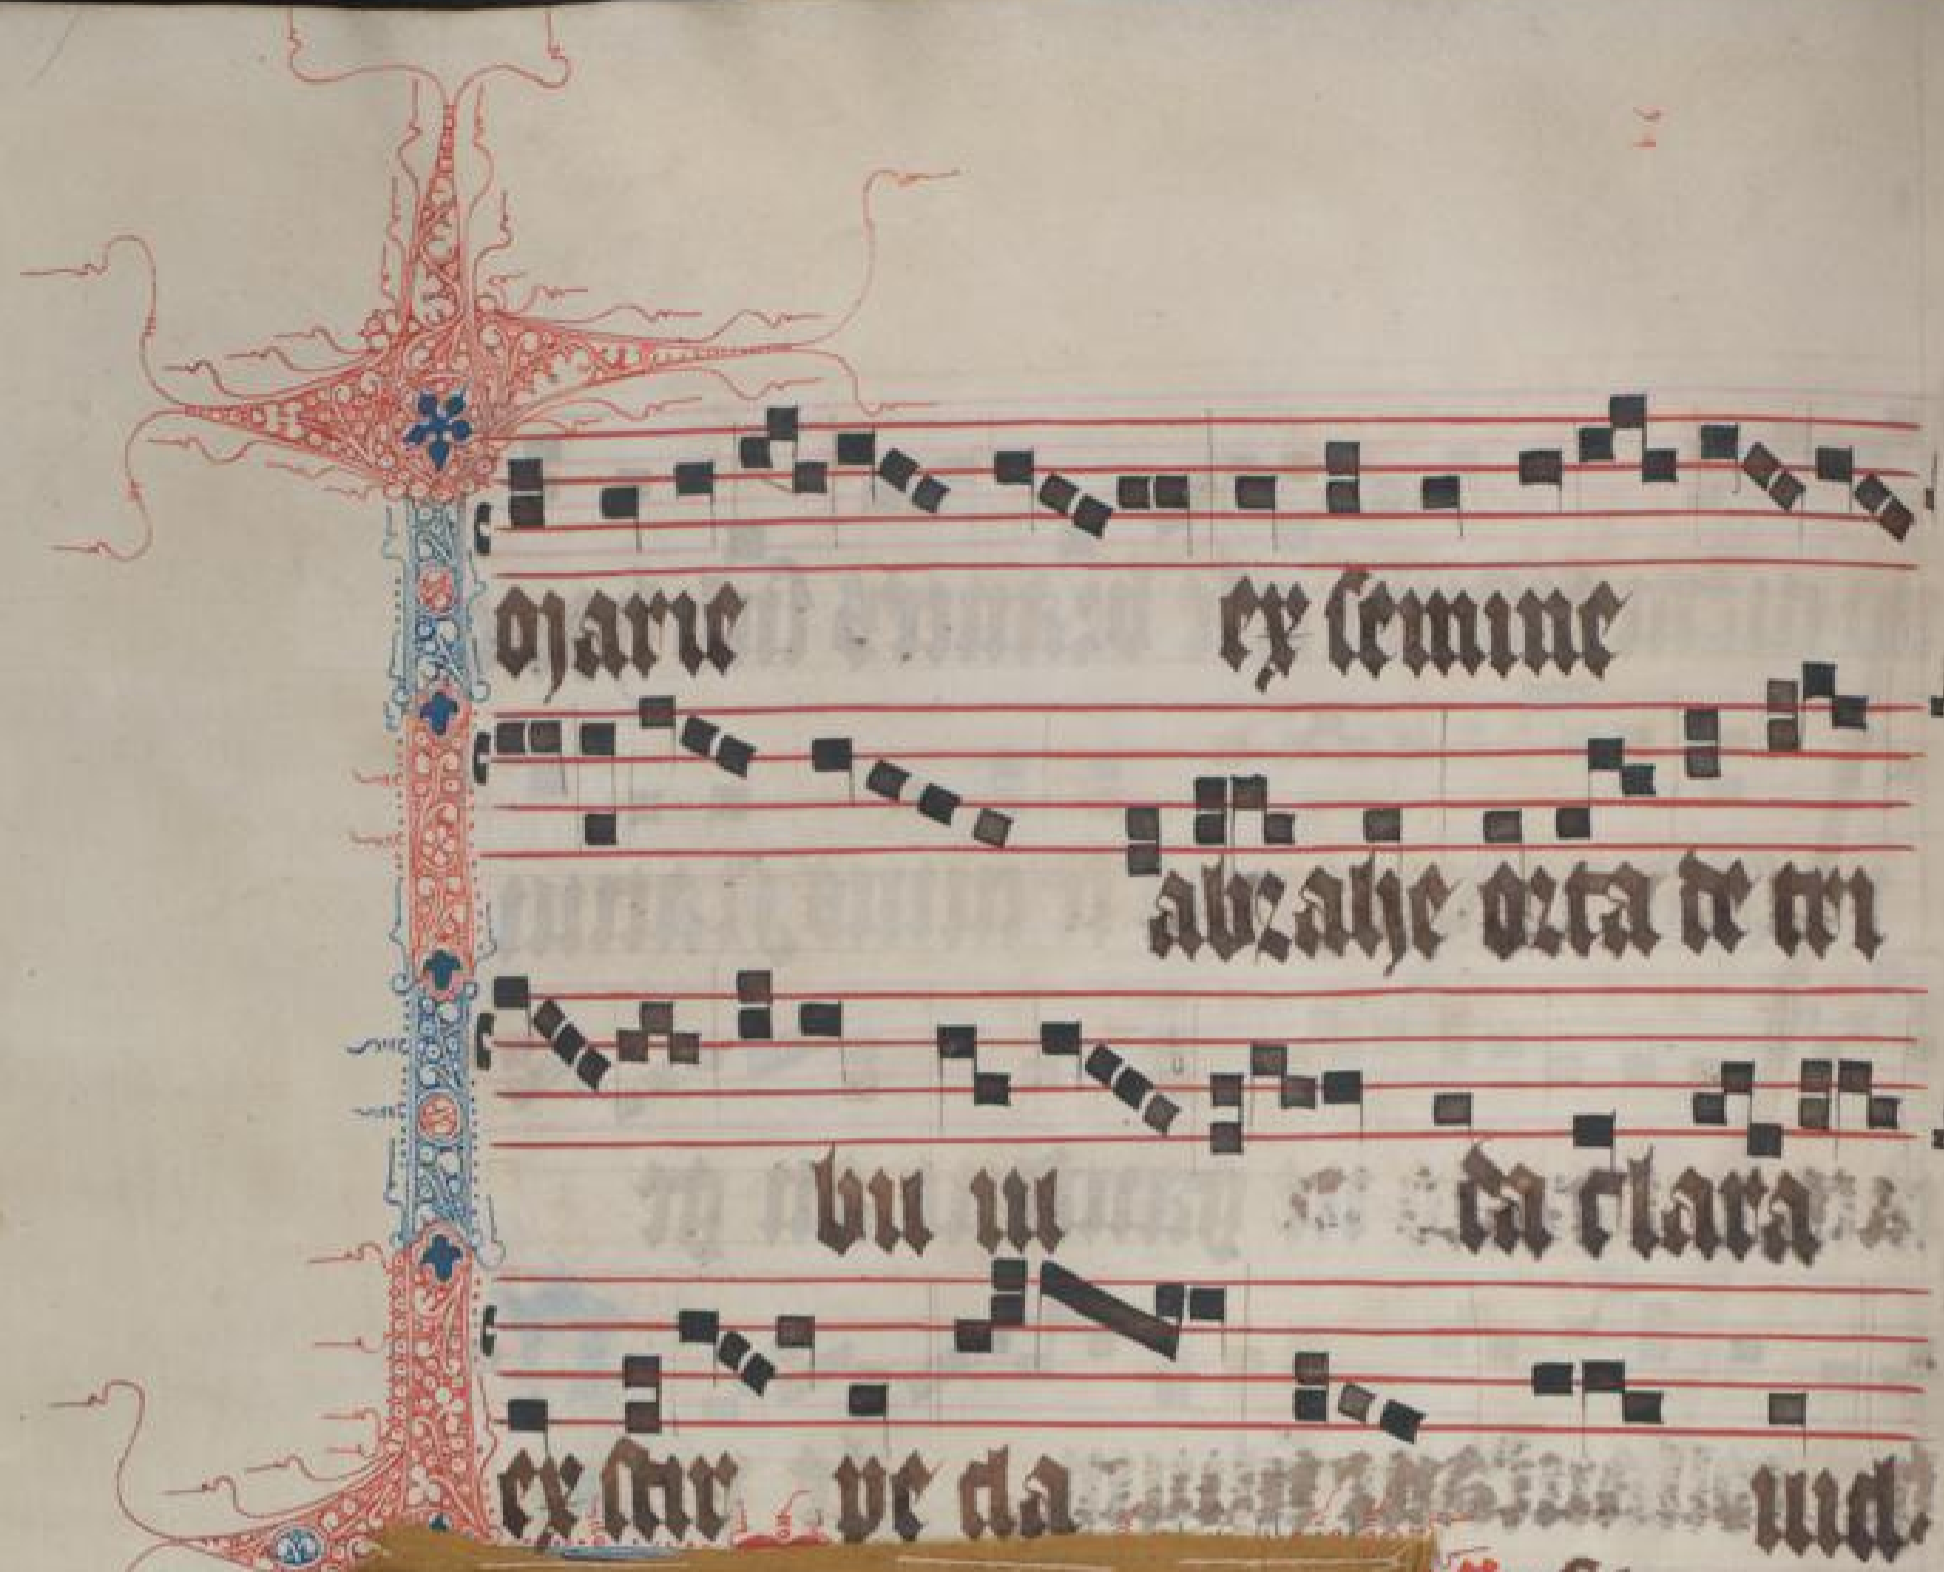 Marie ex semine
abrahe orta de tri
bu iu da clara
ex stir pe da uid.